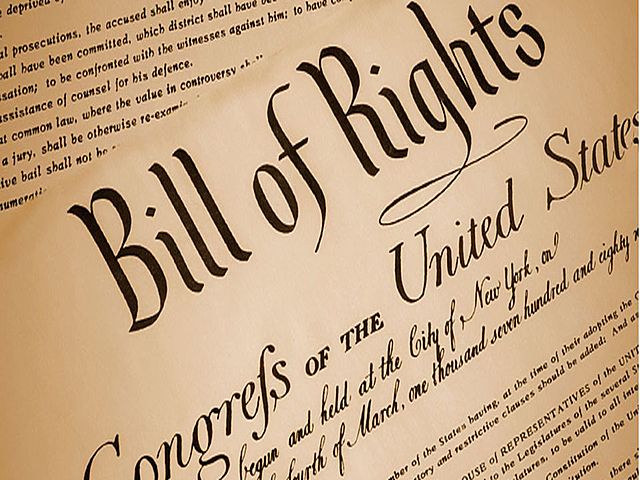 deprived of
al prosecutions, the accused shall enjoy
hall have been committed, which district shall have be
sation; to be confronted with the witnesses against him; to have co
assistance of counsel for his defence.
at common law, where the value in controversy shall
a jury, shall be otherwise re-exami
ive bail shall not be
numerati
Bill of Rights
Congreſs OF THE United States
begun and held at the City of New York, on
fourth of March, one thousand seven hundred and eighty n
mber of the States having, at the time of their adopting the C
tory and restrictive clauses should be added: And as
OUSE of REPRESENTATIVES of the UNIT
to the Legislatures of the several St
latures, to be valid to all inte
Constitution of the Unit
itution.
there